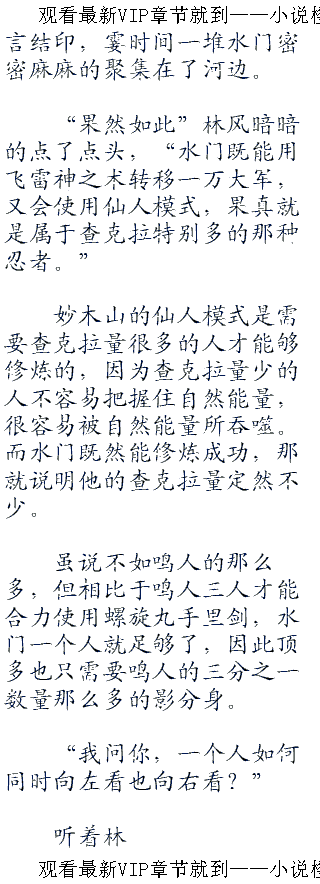 观看最新VIP章节就到——小说检
言结印，霎时间一堆水门密
密麻麻的聚集在了河边。
“果然如此”林风暗暗
的点了点头，“水门既能用
飞雷神之术转移一万大军，
又会使用仙人模式，果真就
是属于查克拉特别多的那种
忍者。”
妙木山的仙人模式是需
要查克拉量很多的人才能够
修炼的，因为查克拉量少的
人不容易把握住自然能量，
很容易被自然能量所吞噬。
而水门既然能修炼成功，那
就说明他的查克拉量定然不
少。
虽说不如鸣人的那么
多，但相比于鸣人三人才能
合力使用螺旋丸手里剑，水
门一个人就足够了，因此顶
多也只需要鸣人的三分之一
数量那么多的影分身。
“我问你，一个人如何
同时向左看也向右看？”
听着林
观看最新VIP章节就到——小说检